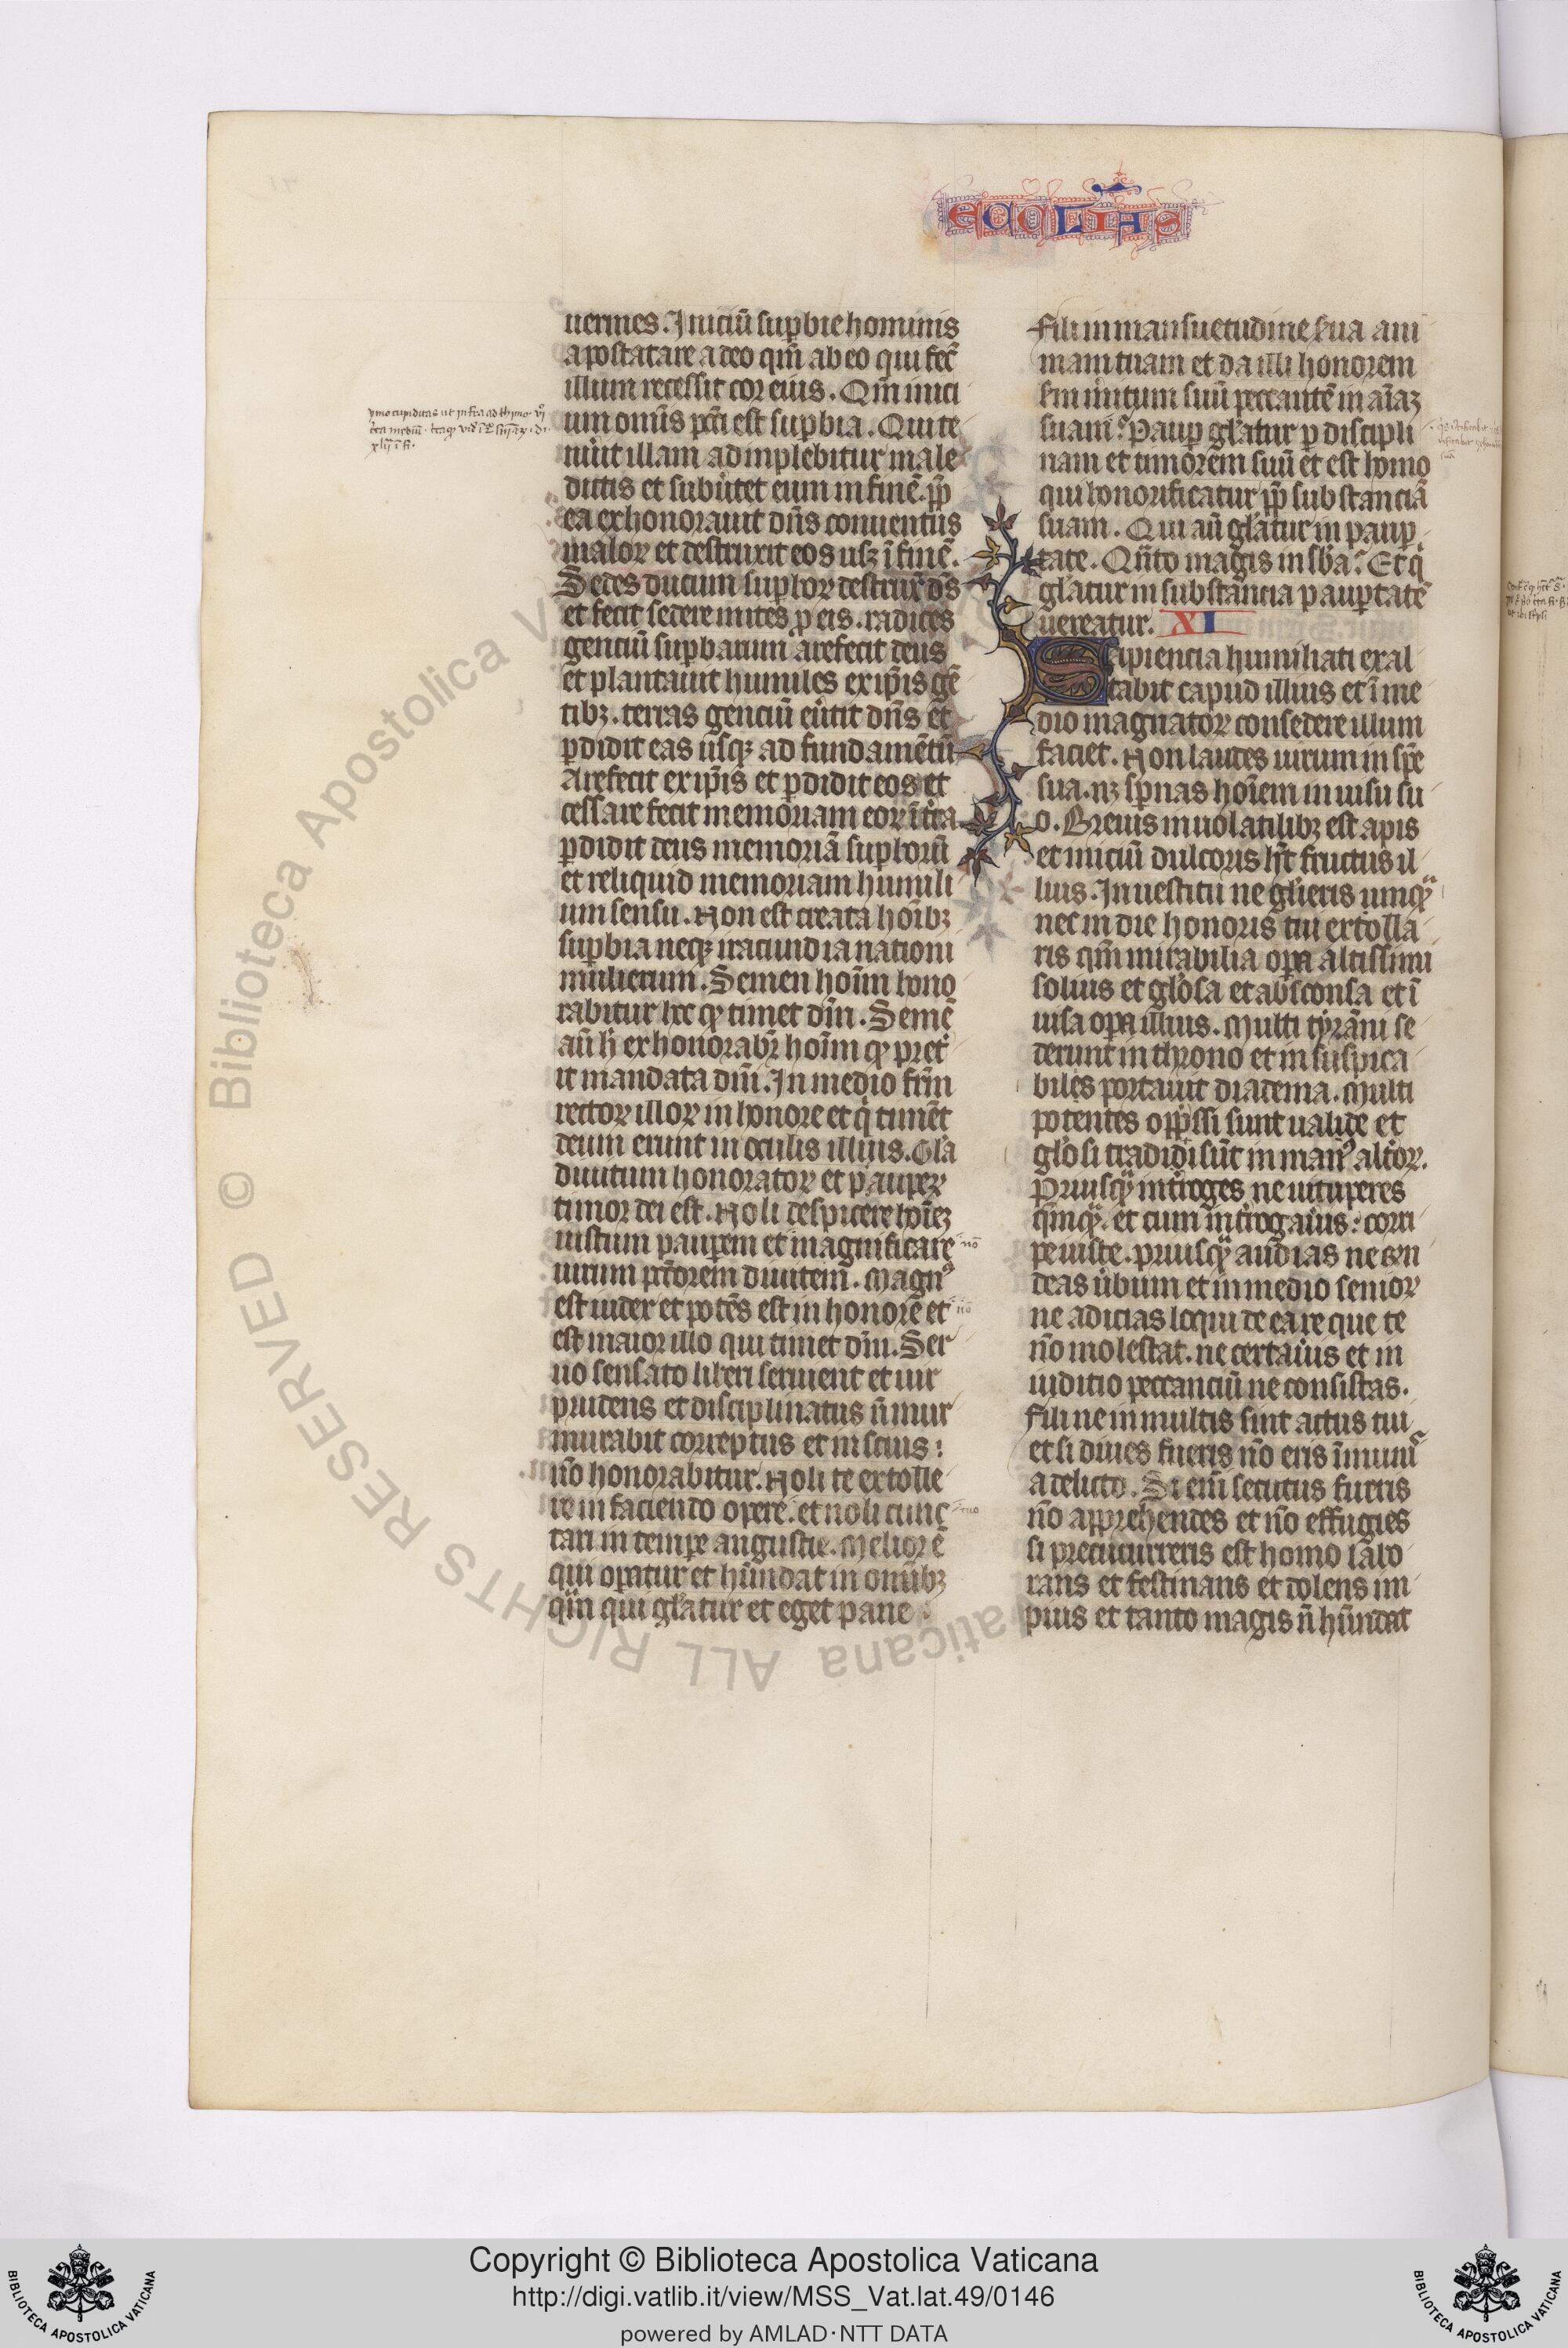 ECCLIAS
uermes. Iniciū suꝑbie hominis
apostatare a deo qm̄ ab eo qui fec̄
illum recessit cor eius. Qm̄ inici
um omīs pcc̄i est suꝑbia. Qui te
nu͛it illam adinplebitur male
dictis et subu͛tet eum in finē. ꝓp̄
ea exhonorauit dn̄s conuentus
maloꝝ et destruxit eos usꝫ ī finē.
Sedes ducum suꝑboꝝ destrux̄ dō̄s
et fecit sedere mites ꝓ eis. radices
genciū suꝑbarum arefecit deus
et plantauit humiles ex ip̄is gē
tibꝫ. terras genciū eu͛tit dn̄s et
ꝑdidit eas usqꝫ ad fundamētū
Arefecit ex ip̄is et ꝑdidit eos et
cessare fecit memoriam eoꝝ ī t͛ra
ꝑdidit deus memoriā suꝑborū
et reliquid memoriam humili
um sensu. Non est creata hoībꝫ
suꝑbia neqꝫ iracundia nationi
mulierum. Semen hoīm hono
rabitur hec qꝫ timet dm̄. Semē
aū h̄ exhonorabr̄ hoīm qꝫ pret͛
it mandata dm̄i. In medio frm̄
rectoꝝ illoꝝ in honore et q̇ timēt
deum erunt in oculis illius. Gl̄a
diuitum honoratoꝝ et pauꝑeꝝ
timor dei est. Noli despicere hoīeꝫ
iustum pauꝑem et magnificare
no͞
uirum pcc̄orem diuitem. Magn⁹
est iudex et potēs est in honore et
no͞
est maior illo qui timet dm̄. Ser
uo sensato liberi seruient et uir
prudens et disciplinatus n̄ mur
murabit correptus et inscius:
nō honorabitur. Noli te extolle
re in faciendo opere. et noli cunc
tuo
tari in tempe angustie. Melior ē
qui oꝑatur et hūndat in omībꝫ
qm̄ qui gl̄atur et eget pane
fili in mansuetudine serua ani
mam tuam et da illi honorem
sm̄ m͛itum suū peccantē in aīaꝫ
suam. Pauꝑ gl̄atur ꝑ discipli
nam et timorem suū et est homo
qui honorificatur ꝓp̄ substanciā
suam. Qui aū gl̄atur in pauꝑ
tate. Qn̄to magis in sb̄a. Et q̇
gl̄atur in substancia pauꝑtatē
uereatur. XI
Sapiencia humiliati exal
tabit capud illius et ī me
dio magnatoꝝ consedere illum
faciet. Non laudes uirum in spē
sua. nꝫ sꝑnas hoīem in uisu su
o. Breuis in uolatilibꝫ est apis
et iniciū dulcoris ht̄ fructus il
lius. In uestitu ne gl̄ieris umqꝫ
nec in die honoris tui extolla
ris qm̄ mirabilia oꝑa altissimi
solius et gl̄osa et absconsa et ī
uisa oꝑa illius. Multi tyrāni se
derunt in throno et in suspica
biles portauit diadema. Multi
potentes opp̄ssi sunt ualide et
gl̄osi tradidi sūt in man⁹ alt͛oꝝ.
Priusqꝫ int͛roges ne uituperes
q̄mqꝫ. et cum int͛rogau͛is: corri
pe iuste. priusqꝫ audias ne respon
deas u͛bum et in medio senioꝝ
ne adicias loqui de ea re que te
nō molestat. ne certau͛is et in
iuditio peccanciū ne consistas.
fili ne in multis sint actus tui
et si diues fueris nō eris īmunis
a delicto. Si enī secutus fueris
nō apprehendes et nō effugies
si precucurreris est homo labo
rans et festinans et dolens im
pius et tanto magis n̄ hūndat
Copyright © Biblioteca Apostolica Vaticana
http://digi.vatlib.it/view/MSS_Vat.lat.49/0146
powered by AMLAD·NTT DATA
BIBLIOTECA APOSTOLICA VATICANA
BIBLIOTECA APOSTOLICA VATICANA
© Biblioteca Apostolica Vaticana ALL RIGHTS RESERVED